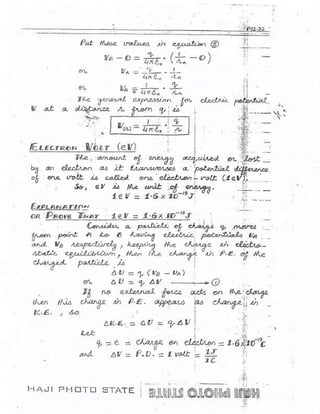 PG-33
Put these values in equation ②
VA − 0 = q/4πε₀ (1/rA − 0)
or VA = q/4πε₀ · 1/rA
or VA = 1/4πε₀ · q/rA
The general expression for electric potential
V at a distance r from q, is
V(r) = 1/4πε₀ · q/r
ELECTRON VOLT (eV)
The, amount of energy acquired or lost
by an electron as it transverses a potential difference
of one volt is called one electron-volt (1eV).
So, eV is the unit of energy.
1eV = 1.6×10⁻¹⁹J
EXPLANATION
OR PROVE THAT 1eV = 1.6×10⁻¹⁹J
Consider a particle of charge q moves
from point A to B having electric potentials VA
and VB respectively, keeping the charge in electro-
static equilibrium, then the change in P.E. of the
charged particle is
ΔU = q (VB − VA)
or ΔU = q ΔV ①
If no external force acts on the charge
then this change in P.E. appears as change in
K.E., so
ΔK.E. = ΔU = qΔV
Let
q = e = charge on electron = 1.6×10⁻¹⁹C
and ΔV = P.D. = 1 volt = 1J/1C
HAJI PHOTO STATE
HAJI PHOTO STATE